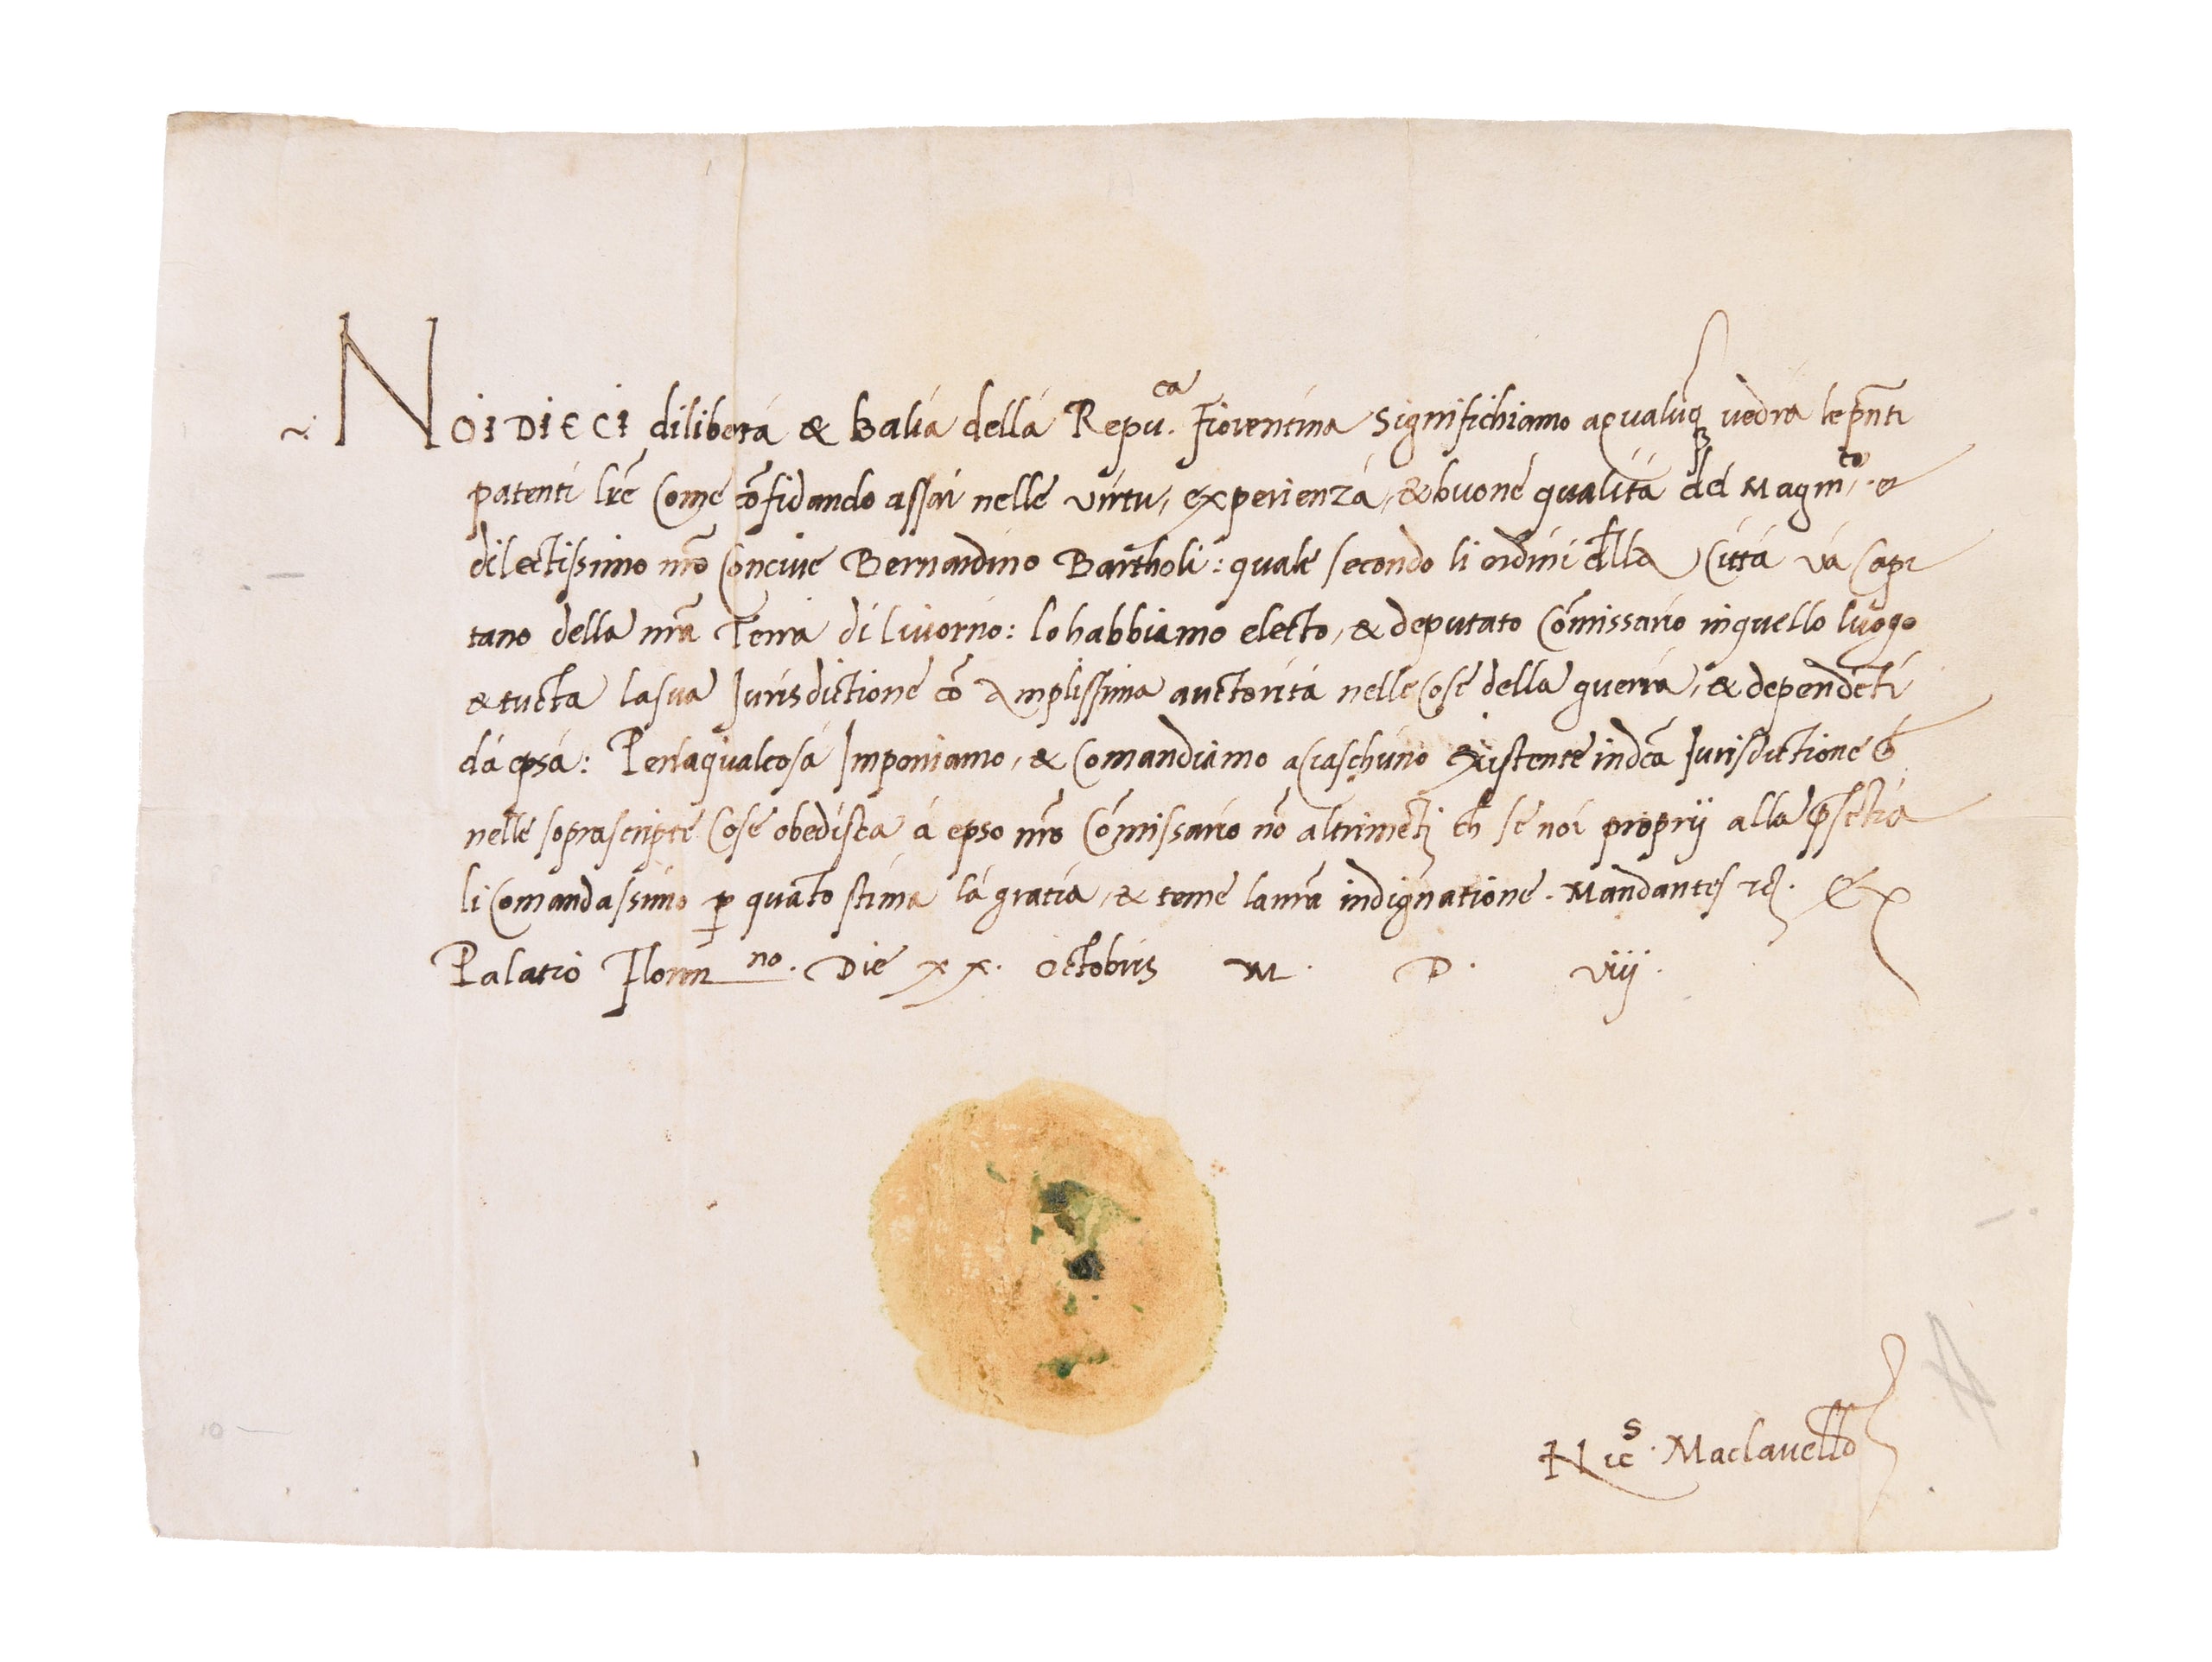 NOI DIECI di libertá & balia della Repu.ca Fiorentina Significhiamo a qualuq vedra le pñti
patenti lr̃e Come cõfidando assai nelle virtu, experienza, & buone qualitá del Magn.co e
dilectissimo nr̃o Concive Bernardino Bartholi: quale secondo li ordini della Cittá vá Capi
tano della nr̃a Terra di Livorno: lo habbiamo electo, & deputato Cõmissario in quello luogo
& tucta la sua Jurisdictione cõ Amplissima auctoritá nelle Cose della guerra, & dependẽti
dá epsa: Per la qual cosá Imponiamo, & Comandiamo a ciaschuno Existente in dc̃a Jurisdictione ch̃
nelle soprascripte Cose obedisca á epso nr̃o Cõmissario nõ altrimẽti ch̃ se noi proprij alla p̃sẽtia
li Comandassimo p quãto stima lá gratia, & teme la nr̃a indignatione. Mandantes rc̃. Ex
Palatio Floren no. Die xx. Octobris M. D. viij.
Nic s. Maclavello